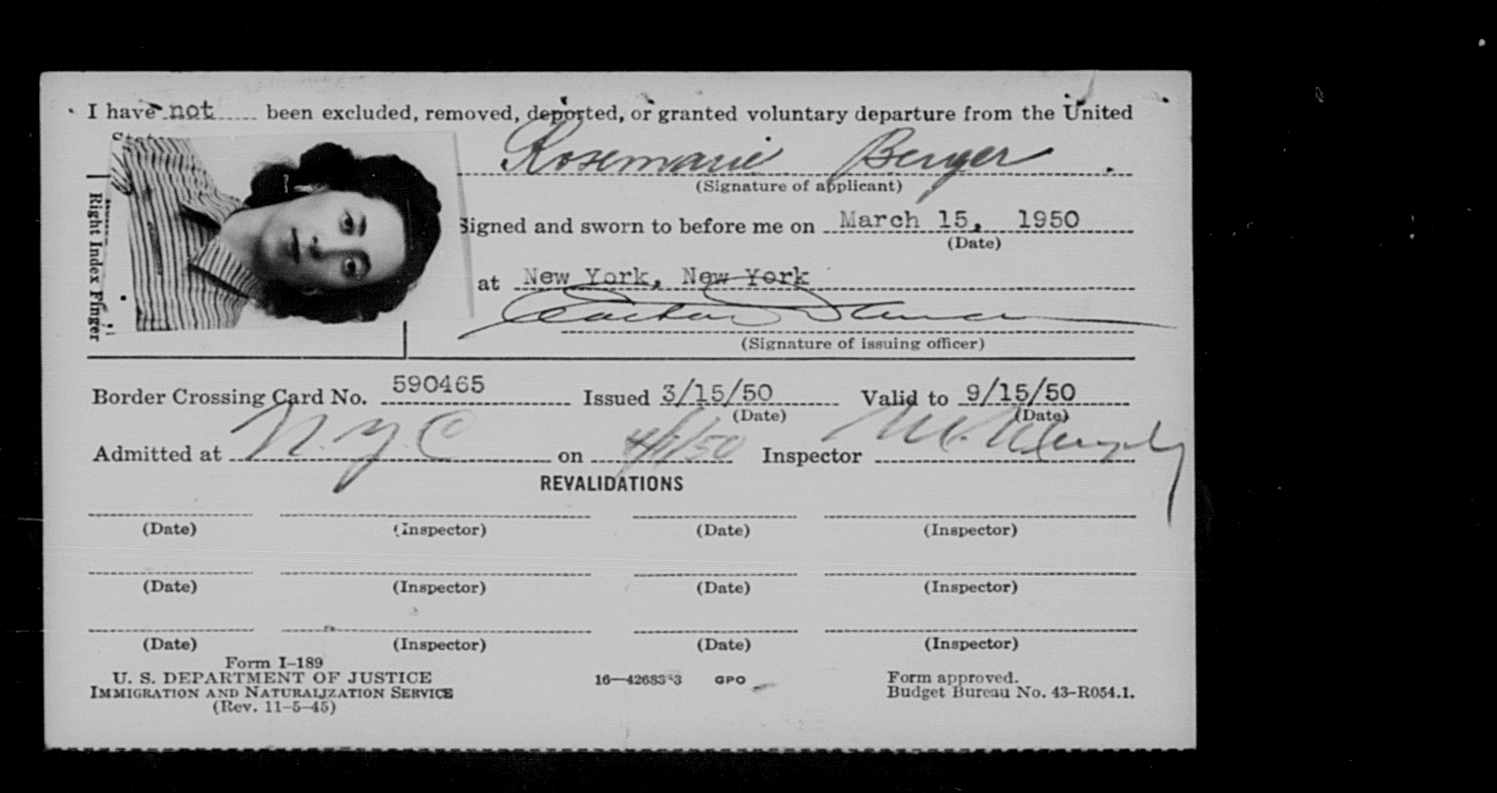 I have not been excluded, removed, deported, or granted voluntary departure from the United
States
Rosemarie Berger
(Signature of applicant)
Right Index Finger
Signed and sworn to before me on March 15, 1950
(Date)
at New York, New York
(Signature of issuing officer)
Border Crossing Card No. 590465 Issued 3/15/50 Valid to 9/15/50
(Date) (Date)
Admitted at N.Y.C on Inspector
REVALIDATIONS
(Date) (Inspector) (Date) (Inspector)
(Date) (Inspector) (Date) (Inspector)
(Date) (Inspector) (Date) (Inspector)
Form I-189
U. S. DEPARTMENT OF JUSTICE
IMMIGRATION AND NATURALIZATION SERVICE
(Rev. 11-5-45)
GPO
Form approved.
Budget Bureau No. 43-R054.1.